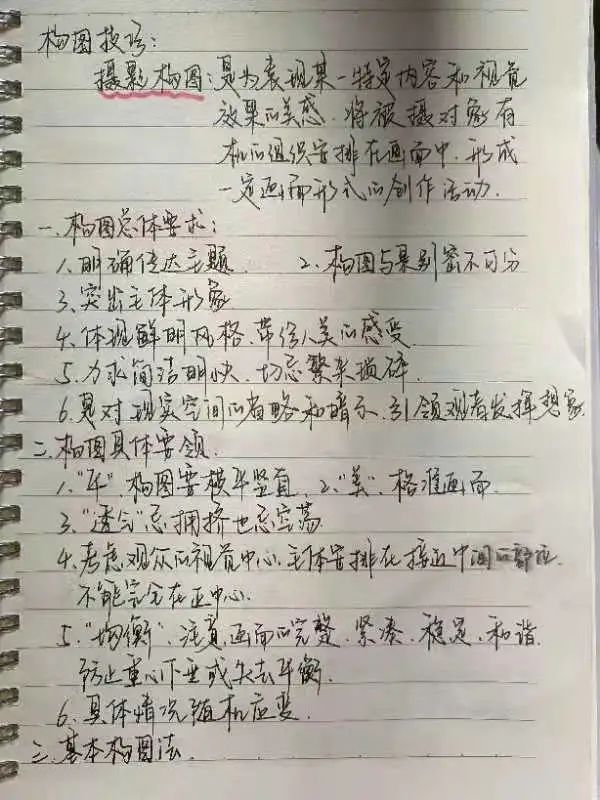 构图技巧:
摄影构图:是为表现某一特定内容和视觉
效果的美感.将被摄对象有
机的组织安排在画面中.形成
一定画面形式的创作活动.
一.构图总体要求:
1.明确传达主题. 2.构图与景别密不可分
3.突出主体形象
4.体现鲜明风格.带给人美的感受
5.力求简洁明快.切忌繁杂琐碎.
6.是对现实空间的省略和暗示.引领观者发挥想象
二.构图具体要领.
1."平".构图要横平竖直. 2."美".格准画面.
3."透气"忌拥挤也忌空荡.
4.考虑观众的视觉中心.主体安排在接近中间的部位.
不能完全在正中心.
5."均衡".注意画面的完整.紧凑.稳定.和谐.
防止重心下垂或失去平衡.
6.具体情况随机应变.
三.基本构图法.